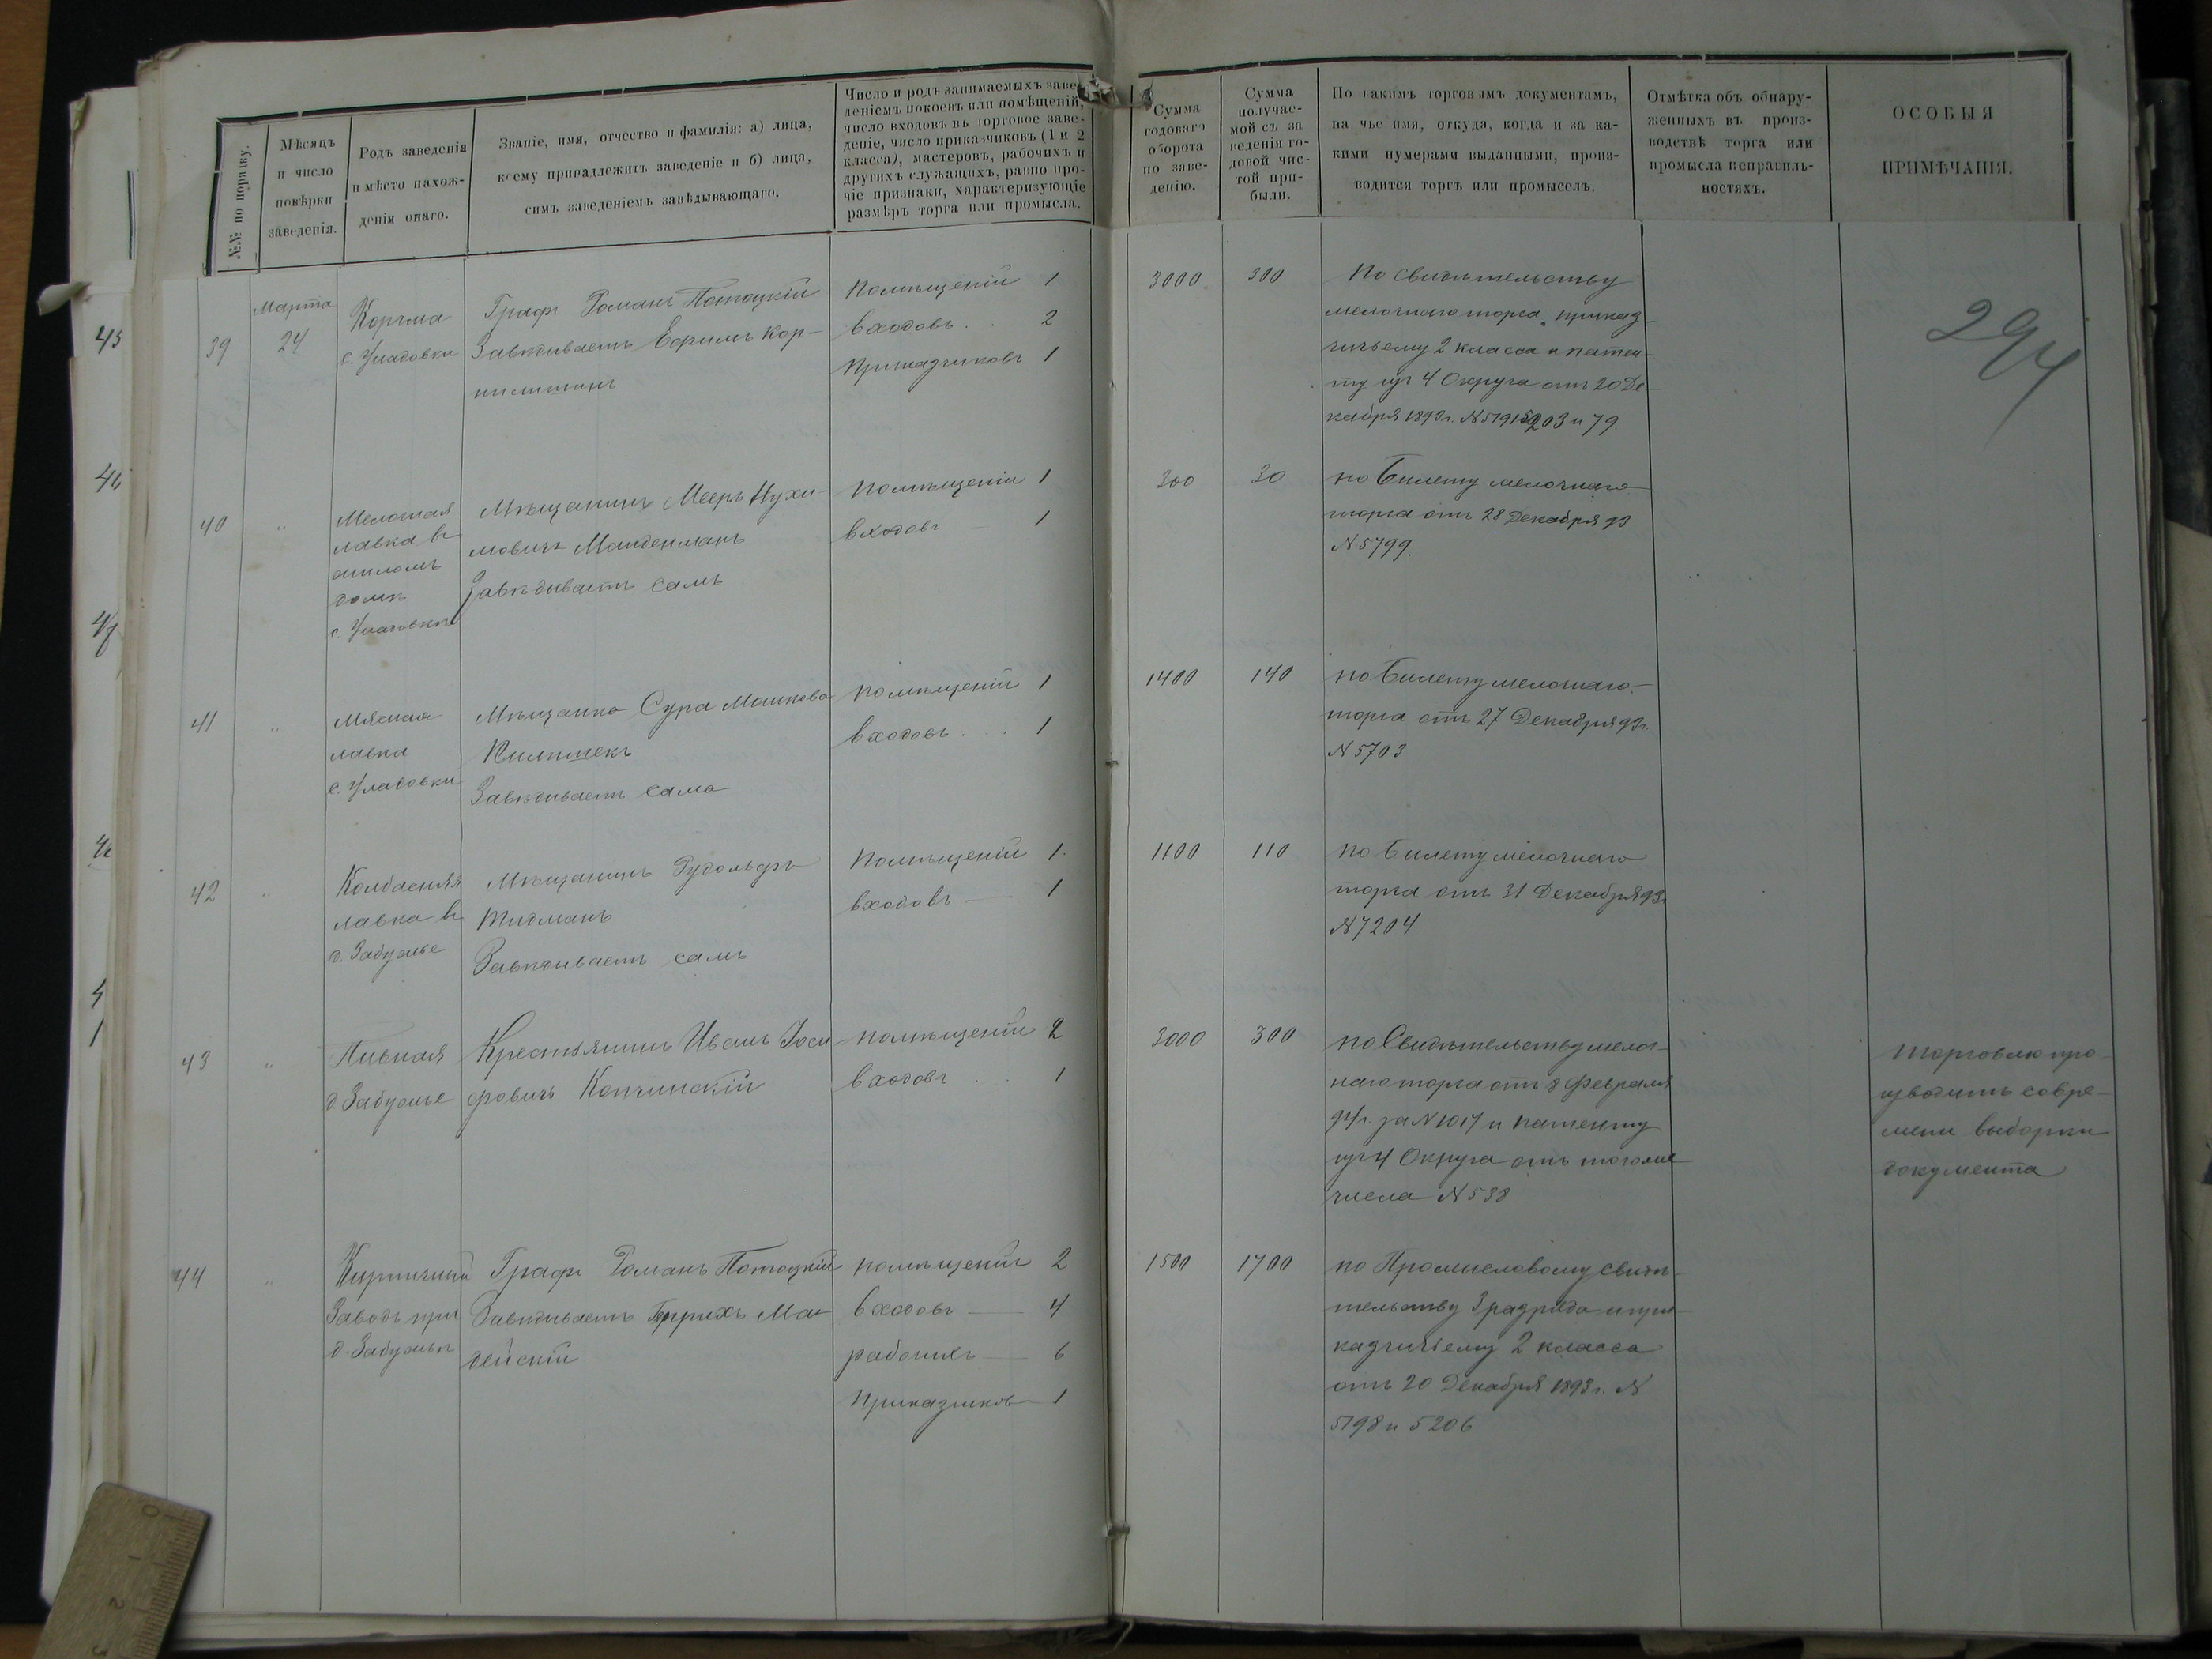 №№ по порядку.
Мѣсяцъ
и число
повѣрки
заведенія.
Родъ заведенія
и мѣсто нахож-
денія онаго.
Званіе, имя, отчество и фамилія: а) лица,
коему принадлежитъ заведеніе и б) лица,
симъ заведеніемъ завѣдывающаго.
Число и родъ занимаемыхъ заве-
деніемъ покоевъ или помѣщеній,
число входовъ въ торговое заве-
деніе, число приказчиковъ (1 и 2
класса), мастеровъ, рабочихъ и
другихъ служащихъ, равно про-
чіе признаки, характеризующіе
размѣръ торга или промысла.
Сумма
годоваго
оборота
по заве-
денію.
Сумма
получае-
мой съ за
веденія го-
довой чис-
той при-
были.
По какимъ торговымъ документамъ,
на чье имя, откуда, когда и за ка-
кими нумерами выданными, произ-
водится торгъ или промыселъ.
Отмѣтка объ обнару-
женныхъ въ произ-
водствѣ торга или
промысла неправиль-
ностяхъ.
ОСОБЫЯ
ПРИМѢЧАНІЯ.
294
39
Марта
24
Корчма
с. Уладовки
Графъ Романъ Потоцкій
Завѣдываетъ Ефимъ Кор-
Помѣщеній 1
входовъ . . 2
Приказчиковъ 1
3000
300
По свидѣтельству
мелочнаго торга, приказ-
чичьему 2 класса и патен-
ту изъ 4 Округа отъ 20 Де-
кабря 1893 г. и 79.
40
"
Мелочная
лавка въ
жиломъ
домѣ
с. Уладовки
Мѣщанинъ Мееръ Нухи-
мовичъ
Завѣдываетъ самъ
Помѣщеній 1
входовъ — 1
300
30
по Билету мелочнаго
торга отъ 28 Декабря 93
№ 5799.
41
"
Мясная
лавка
с. Уладовки
Мѣщанка Сура Мошкова
Завѣдываетъ сама
Помѣщеній 1
входовъ . . 1
1400
140
по Билету мелочнаго
торга отъ 27 Декабря 93 г.
№ 5703
42
"
Колбасная
лавка въ
д. Забужье
Мѣщанинъ Рудольфъ
Тидманъ
Завѣдываетъ самъ
Помѣщеній 1.
входовъ — 1
1100
110
по Билету мелочнаго
торга отъ 31 Декабря 93 г.
№ 7204
43
"
Пивная
д. Забужье
Крестьянинъ Иванъ Іоси-
фовичъ Копчинскій
помѣщеній 2
входовъ . . 1
3000
300
по Свидѣтельству мелоч-
наго торга отъ 8 Февраля
94 г. за № 1017 и патенту
изъ 4 Округа отъ тогоже
числа № 538
Торговлю про-
изводитъ со вре-
мени выборки
документа
44
"
Кирпичный
Заводъ при
д. Забужьѣ
Графъ Романъ Потоцкій
Завѣдываетъ Генрихъ Ма-
дейскій
помѣщеній 2
входовъ — 4
рабочихъ — 6
Приказчиковъ 1
1500
1700
по Промысловому свидѣ-
тельству 3 разряда и при-
казчичьему 2 класса
отъ 20 Декабря 1893 г. №
5198 и 5206